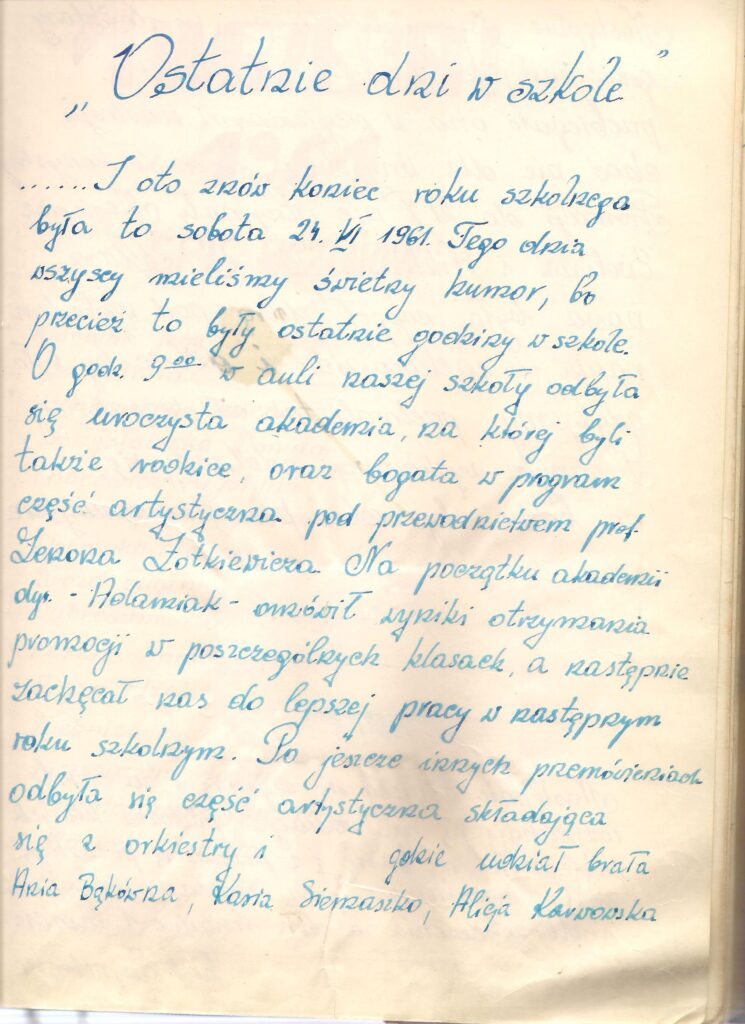 „Ostatnie dni w szkole”
......I oto znów koniec roku szkolnego
była to sobota 24. VI 1961. Tego dnia
wszyscy mieliśmy świetny humor, bo
przecież to były ostatnie godziny w szkole.
O godz. 9⁰⁰ w auli naszej szkoły odbyła
się uroczysta akademia, na której byli
także rodzice, oraz bogata w program
część artystyczna pod przewodnictwem prof.
Zenona Żółkiewicza. Na początku akademii
dyr. - Adamiak - omówił wyniki otrzymania
promocji w poszczególnych klasach, a następnie
zachęcał nas do lepszej pracy w następnym
roku szkolnym. Po jeszcze innych przemówieniach
odbyła się część artystyczna składająca
się z orkiestry i gdzie udział brała
Ania Bąkówna, Kasia Siemaszko, Alicja Karwowska